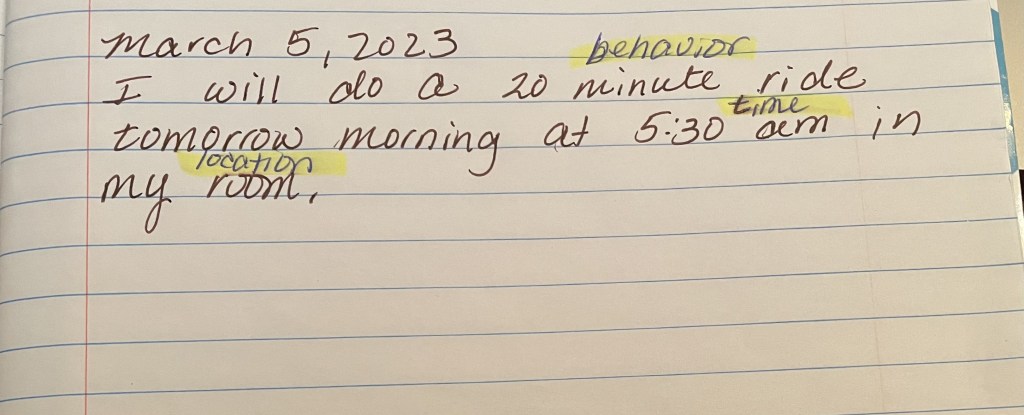 March 5, 2023
behavior
I will do a 20 minute ride
time
tomorrow morning at 5:30 am in
location
my room.